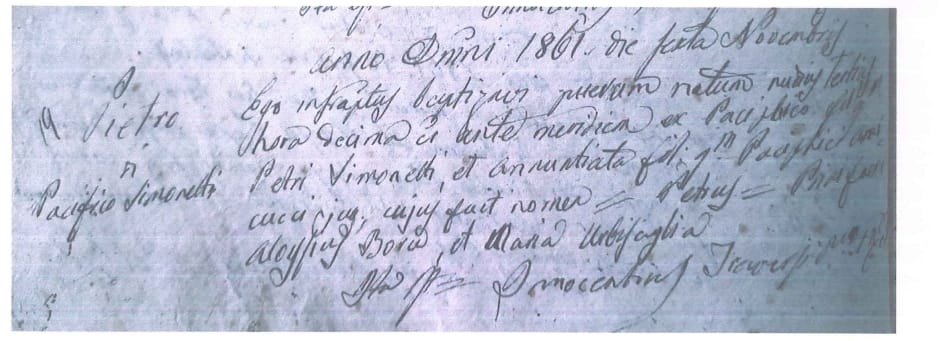 Anno Dmni 1861 die sexta Novembris
19 Pietro
Pacifico Simonetti
Ego infraptus baptizavi puerum natum nudius tertius
hora decima ci ante meridiem ex Pacifico filio
Petri Simonetti, et Annuntiata fil. qm Pacifici
cujus fuit nomen = Petrus =
Aloysius Bora et Maria Urbisaglia
Ita = Innocentius